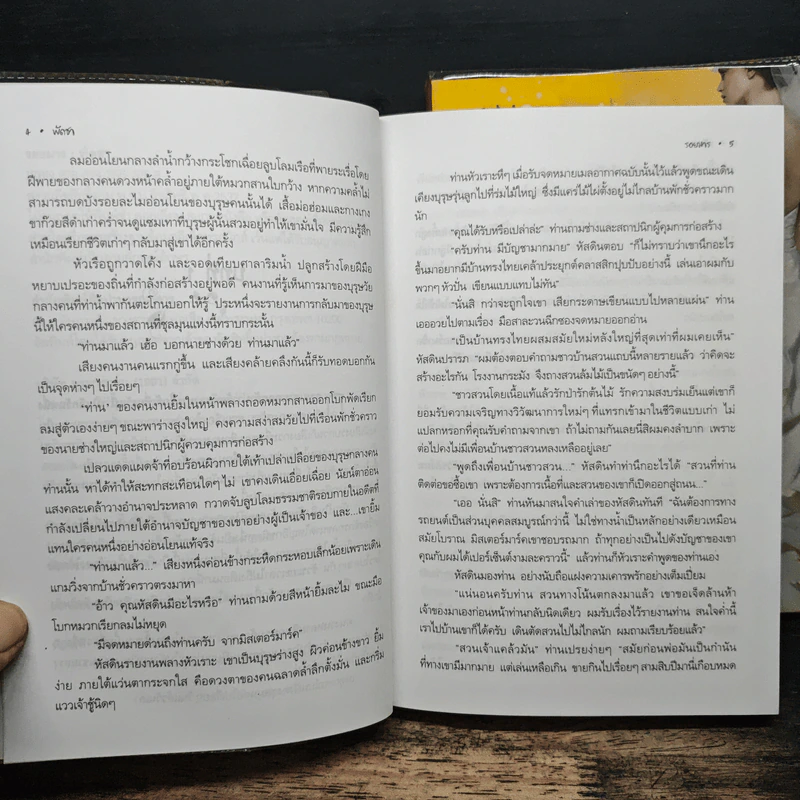 4 • พัดชา
ลมอ่อนโยนกลางลำน้ำกว้างกระโชกเฉื่อยลูบโลมเรือที่พายระเรื่อโดย
ฝีพายของกลางคนดวงหน้าคล้ำอยู่ภายใต้หมวกสานใบกว้าง หากความคล้ำไม่
สามารถบดบังรอยละไมอ่อนโยนของบุรุษคนนั้นได้ เสื้อม่อฮ่อมและกางเกง
ขาก๊วยสีดำเก่าคร่ำจนดูแซมเทาที่บุรุษผู้นั้นสวมอยู่ทำให้เขามั่นใจ มีความรู้สึก
เหมือนเรียกชีวิตเก่าๆ กลับมาสู่เขาได้อีกครั้ง
หัวเรือถูกวาดโค้ง และจอดเทียบศาลาริมน้ำ ปลูกสร้างโดยฝีมือ
หยาบเปรอะของถิ่นที่กำลังก่อสร้างอยู่พอดี คนงานที่รู้เห็นการมาของบุรุษวัย
กลางคนที่ท่าน้ำพากันตะโกนบอกให้รู้ ประหนึ่งจะรายงานการกลับมาของบุรุษ
นี้ให้ใครคนหนึ่งของสถานที่ชุลมุนแห่งนี้ทราบกระนั้น
“ท่านมาแล้ว เฮ้อ บอกนายช่างด้วย ท่านมาแล้ว”
เสียงคนงานคนแรกกู่ขึ้น และเสียงคล้ายคลึงกันนี้ก็รับทอดบอกกัน
เป็นจุดห่างๆ ไปเรื่อยๆ
‘ท่าน’ ของคนงานยิ้มในหน้าพลางถอดหมวกสานออกโบกพัดเรียก
ลมสู่ตัวเองง่ายๆ ขณะพาร่างสูงใหญ่ คงความสง่าสมวัยไปที่เรือนพักชั่วคราว
ของนายช่างใหญ่และสถาปนิกผู้ควบคุมการก่อสร้าง
เปลวแดดแผดจ้าที่อบร้อนผิวกายใต้เท้าเปล่าเปลือยของบุรุษกลางคน
ท่านนั้น หาได้ทำให้สะทกสะเทือนใดๆ ไม่ เขาคงเดินเอื่อยเฉื่อย นัยน์ตาอ่อน
แสงคละเคล้าวางอำนาจประหลาด กวาดจับลูบโลมธรรมชาติรอบกายในอดีตที่
กำลังเปลี่ยนไปภายใต้อำนาจบัญชาของเขาอย่างผู้เป็นเจ้าของ และ...เขายิ้ม
แทนใครคนหนึ่งอย่างอ่อนโยนแท้จริง
“ท่านมาแล้ว...” เสียงหนึ่งค่อนข้างกระหืดกระหอบเล็กน้อยเพราะเดิน
แกมวิ่งจากบ้านชั่วคราวตรงมาหา
“อ้าว คุณหัสดินมีอะไรหรือ” ท่านถามด้วยสีหน้ายิ้มละไม ขณะมือ
โบกหมวกเรียกลมไม่หยุด
“มีจดหมายด่วนถึงท่านครับ จากมิสเตอร์มาร์ค”
หัสดินรายงานพลางหัวเราะ เขาเป็นบุรุษร่างสูง ผิวค่อนข้างขาว ยิ้ม
ง่าย ภายใต้แว่นตากระจกใส คือดวงตาของคนฉลาดล้ำลึกตั้งมั่น และกริ่ม
แววเจ้าชู้นิดๆ
รอบมาร • 5
ท่านหัวเราะหึๆ เมื่อรับจดหมายเมลอากาศฉบับนั้นไว้แล้วพูดขณะเดิน
เคียงบุรุษรุ่นลูกไปที่ร่มไม้ใหญ่ ซึ่งมีแคร่ไม้ไผ่ตั้งอยู่ไม่ไกลบ้านพักชั่วคราวมาก
นัก
“คุณได้รับหรือเปล่าล่ะ” ท่านถามช่างและสถาปนิกผู้คุมการก่อสร้าง
“ครับท่าน มีบัญชามากมาย” หัสดินตอบ “ก็ไม่ทราบว่าเขานึกอะไร
ขึ้นมาอยากมีบ้านทรงไทยเคล้าประยุกต์คลาสสิกปุบปับอย่างนี้ เล่นเอาผมกับ
พวกๆ หัวปั่น เขียนแบบแทบไม่ทัน”
“นั่นสิ กว่าจะถูกใจเขา เสียกระดาษเขียนแบบไปหลายแผ่น” ท่าน
เอออวยไปตามเรื่อง มือสาละวนฉีกซองจดหมายออกอ่าน
“เป็นบ้านทรงไทยผสมสมัยใหม่หลังใหญ่ที่สุดเท่าที่ผมเคยเห็น”
หัสดินปรารภ “ผมต้องตอบคำถามชาวบ้านสวนแถบนี้หลายรายแล้ว ว่าคิดจะ
สร้างอะไรกัน โรงงานกระมัง จึงถางสวนล้มไม้เป็นขนัดๆ อย่างนี้”
“ชาวสวนโดยเนื้อแท้แล้วรักป่ารักต้นไม้ รักความสงบร่มเย็นแต่เขาก็
ยอมรับความเจริญทางวิวัฒนาการใหม่ๆ ที่แทรกเข้ามาในชีวิตแบบเก่า ไม่
แปลกหรอกที่คุณรับคำถามจากเขา ถ้าไม่ถามกันเลยนี่สิผมคงลำบาก เพราะ
ต่อไปคงไม่มีเพื่อนบ้านชาวสวนหลงเหลืออยู่เลย”
“พูดถึงเพื่อนบ้านชาวสวน...” หัสดินทำท่านึกอะไรได้ “สวนที่ท่าน
ติดต่อขอซื้อเขา เพราะต้องการเนื้อที่และสวนของเขาก็เปิดออกสู่ถนน...”
“เออ นั่นสิ” ท่านหันมาสนใจคำเล่าของหัสดินทันที “ฉันต้องการทาง
รถยนต์เป็นส่วนบุคคลสมบูรณ์กว่านี้ ไม่ใช่ทางน้ำเป็นหลักอย่างเดียวเหมือน
สมัยโบราณ มิสเตอร์มาร์คเขาชอบรถมาก ถ้าทุกอย่างเป็นไปดังบัญชาของเขา
คุณกับผมได้เปอร์เซ็นต์งามละคราวนี้” แล้วท่านก็หัวเราะคำพูดของท่านเอง
หัสดินมองท่าน อย่างนับถือแฝงความเคารพรักอย่างเต็มเปี่ยม
“แน่นอนครับท่าน สวนทางโน้นตกลงมาแล้ว เขาขอเจ็ดล้านห้า
เจ้าของมาเองก่อนหน้าท่านกลับนิดเดียว ผมรับเรื่องไว้รายงานท่าน สนใจค่ำนี้
เราไปบ้านเขาก็ได้ครับ เดินตัดสวนไปไม่ไกลนัก ผมถามเรียบร้อยแล้ว”
“สวนเจ้าแคล้วมัน” ท่านเปรยง่ายๆ “สมัยก่อนพ่อมันเป็นกำนัน
ที่ทางเขามีมากมาย แต่เล่นเหลือเกิน ขายกินไปเรื่อยๆ สามสิบปีมานี่เกือบหมด